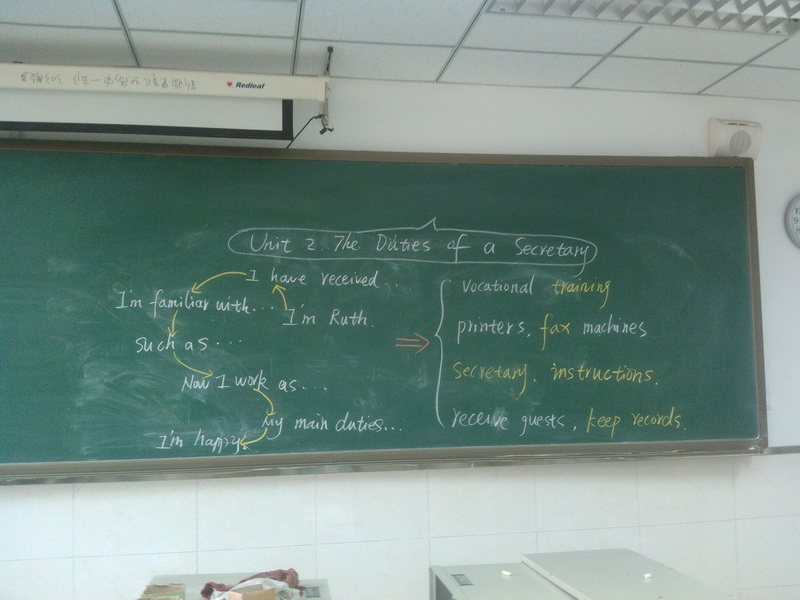 Redleaf
Unit 2. The Duties of a Secretary
I have received...
I'm familiar with...
I'm Ruth.
such as...
Now I work as...
My main duties...
I'm happy.
vocational training
printers, fax machines
secretary, instructions.
receive guests, keep records.